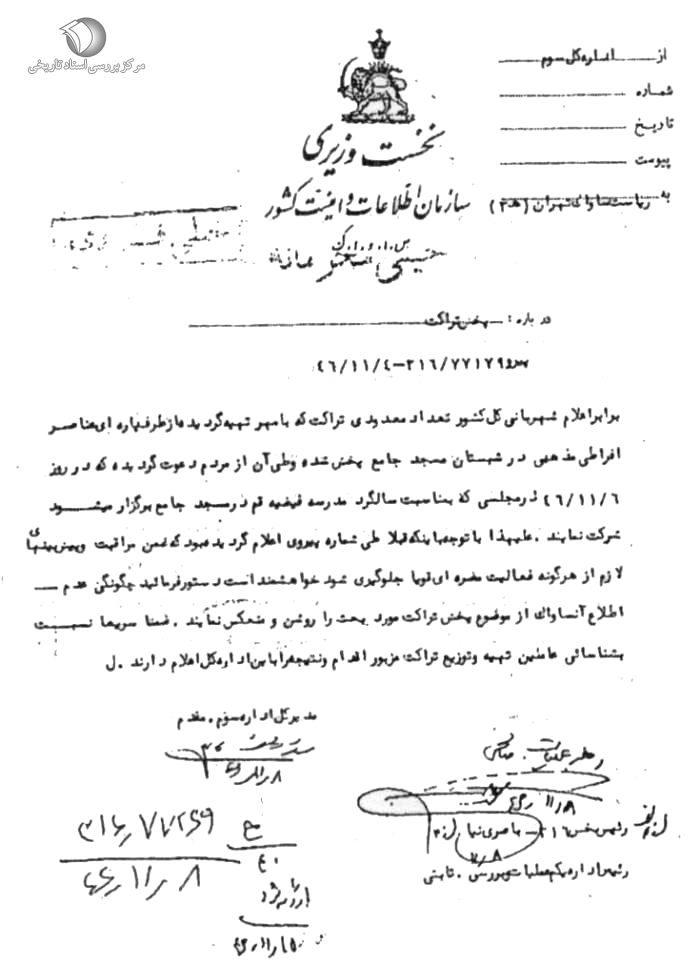 مرکز بررسی اسناد تاریخی
از اداره کل سوم
شماره
تاریخ
پیوست
به ریاست ساواک تهران (۲۰ه‍)
نخست وزیری
سازمان اطلاعات و امنیت کشور
س.ا.و.ا.ک
درباره : پخش تراکت
پیرو ۳۱۶/۷۷۱۷۹-۴۶/۱۱/۴
برابر اعلام شهربانی کل کشور تعداد معدودی تراکت که با مهر تهیه گردیده از طرف پاره ای عناصر
افراطی مذهبی در شبستان مسجد جامع پخش شده و طی آن از مردم دعوت گردیده که در روز
۴۶/۱۱/۶ در مجلسی که بمناسبت سالگرد مدرسه فیضیه قم در مسجد جامع برگزار میشود
شرکت نمایند . علیهذا با توجه باینکه قبلا طی شماره پیروی اعلام گردیده بود که ضمن مراقبت و پیش بینیهای
لازم از هرگونه فعالیت مضره ای قویا جلوگیری شود خواهشمند است دستور فرمائید چگونگی عدم
اطلاع آنساواک از موضوع پخش تراکت مورد بحث را روشن و منعکس نمایند . ضمنا سریعا نسبت
بشناسائی عاملین تهیه و توزیع تراکت مزبور اقدام و نتیجه را باین اداره کل اعلام دارند . ل
مدیر کل اداره سوم . مقدم
۴۶/۱۱/۸
رئیس بخش ۳۱۶ - ناصری نیا
رئیس اداره یکم عملیات و بررسی . ثابتی
۳۱۶/۷۷۲۶۹
۴۶/۱۱/۸